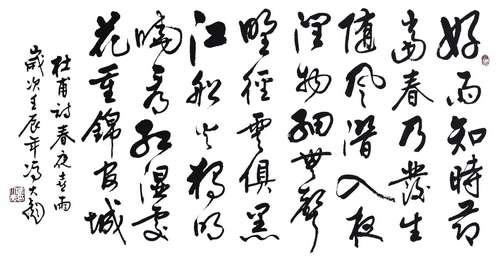 好雨知時節
當春乃發生
隨風潛入夜
潤物細無聲
野徑雲俱黑
江船火獨明
曉看紅濕處
花重錦官城
杜甫詩春夜喜雨
歲次壬辰年馮大彪